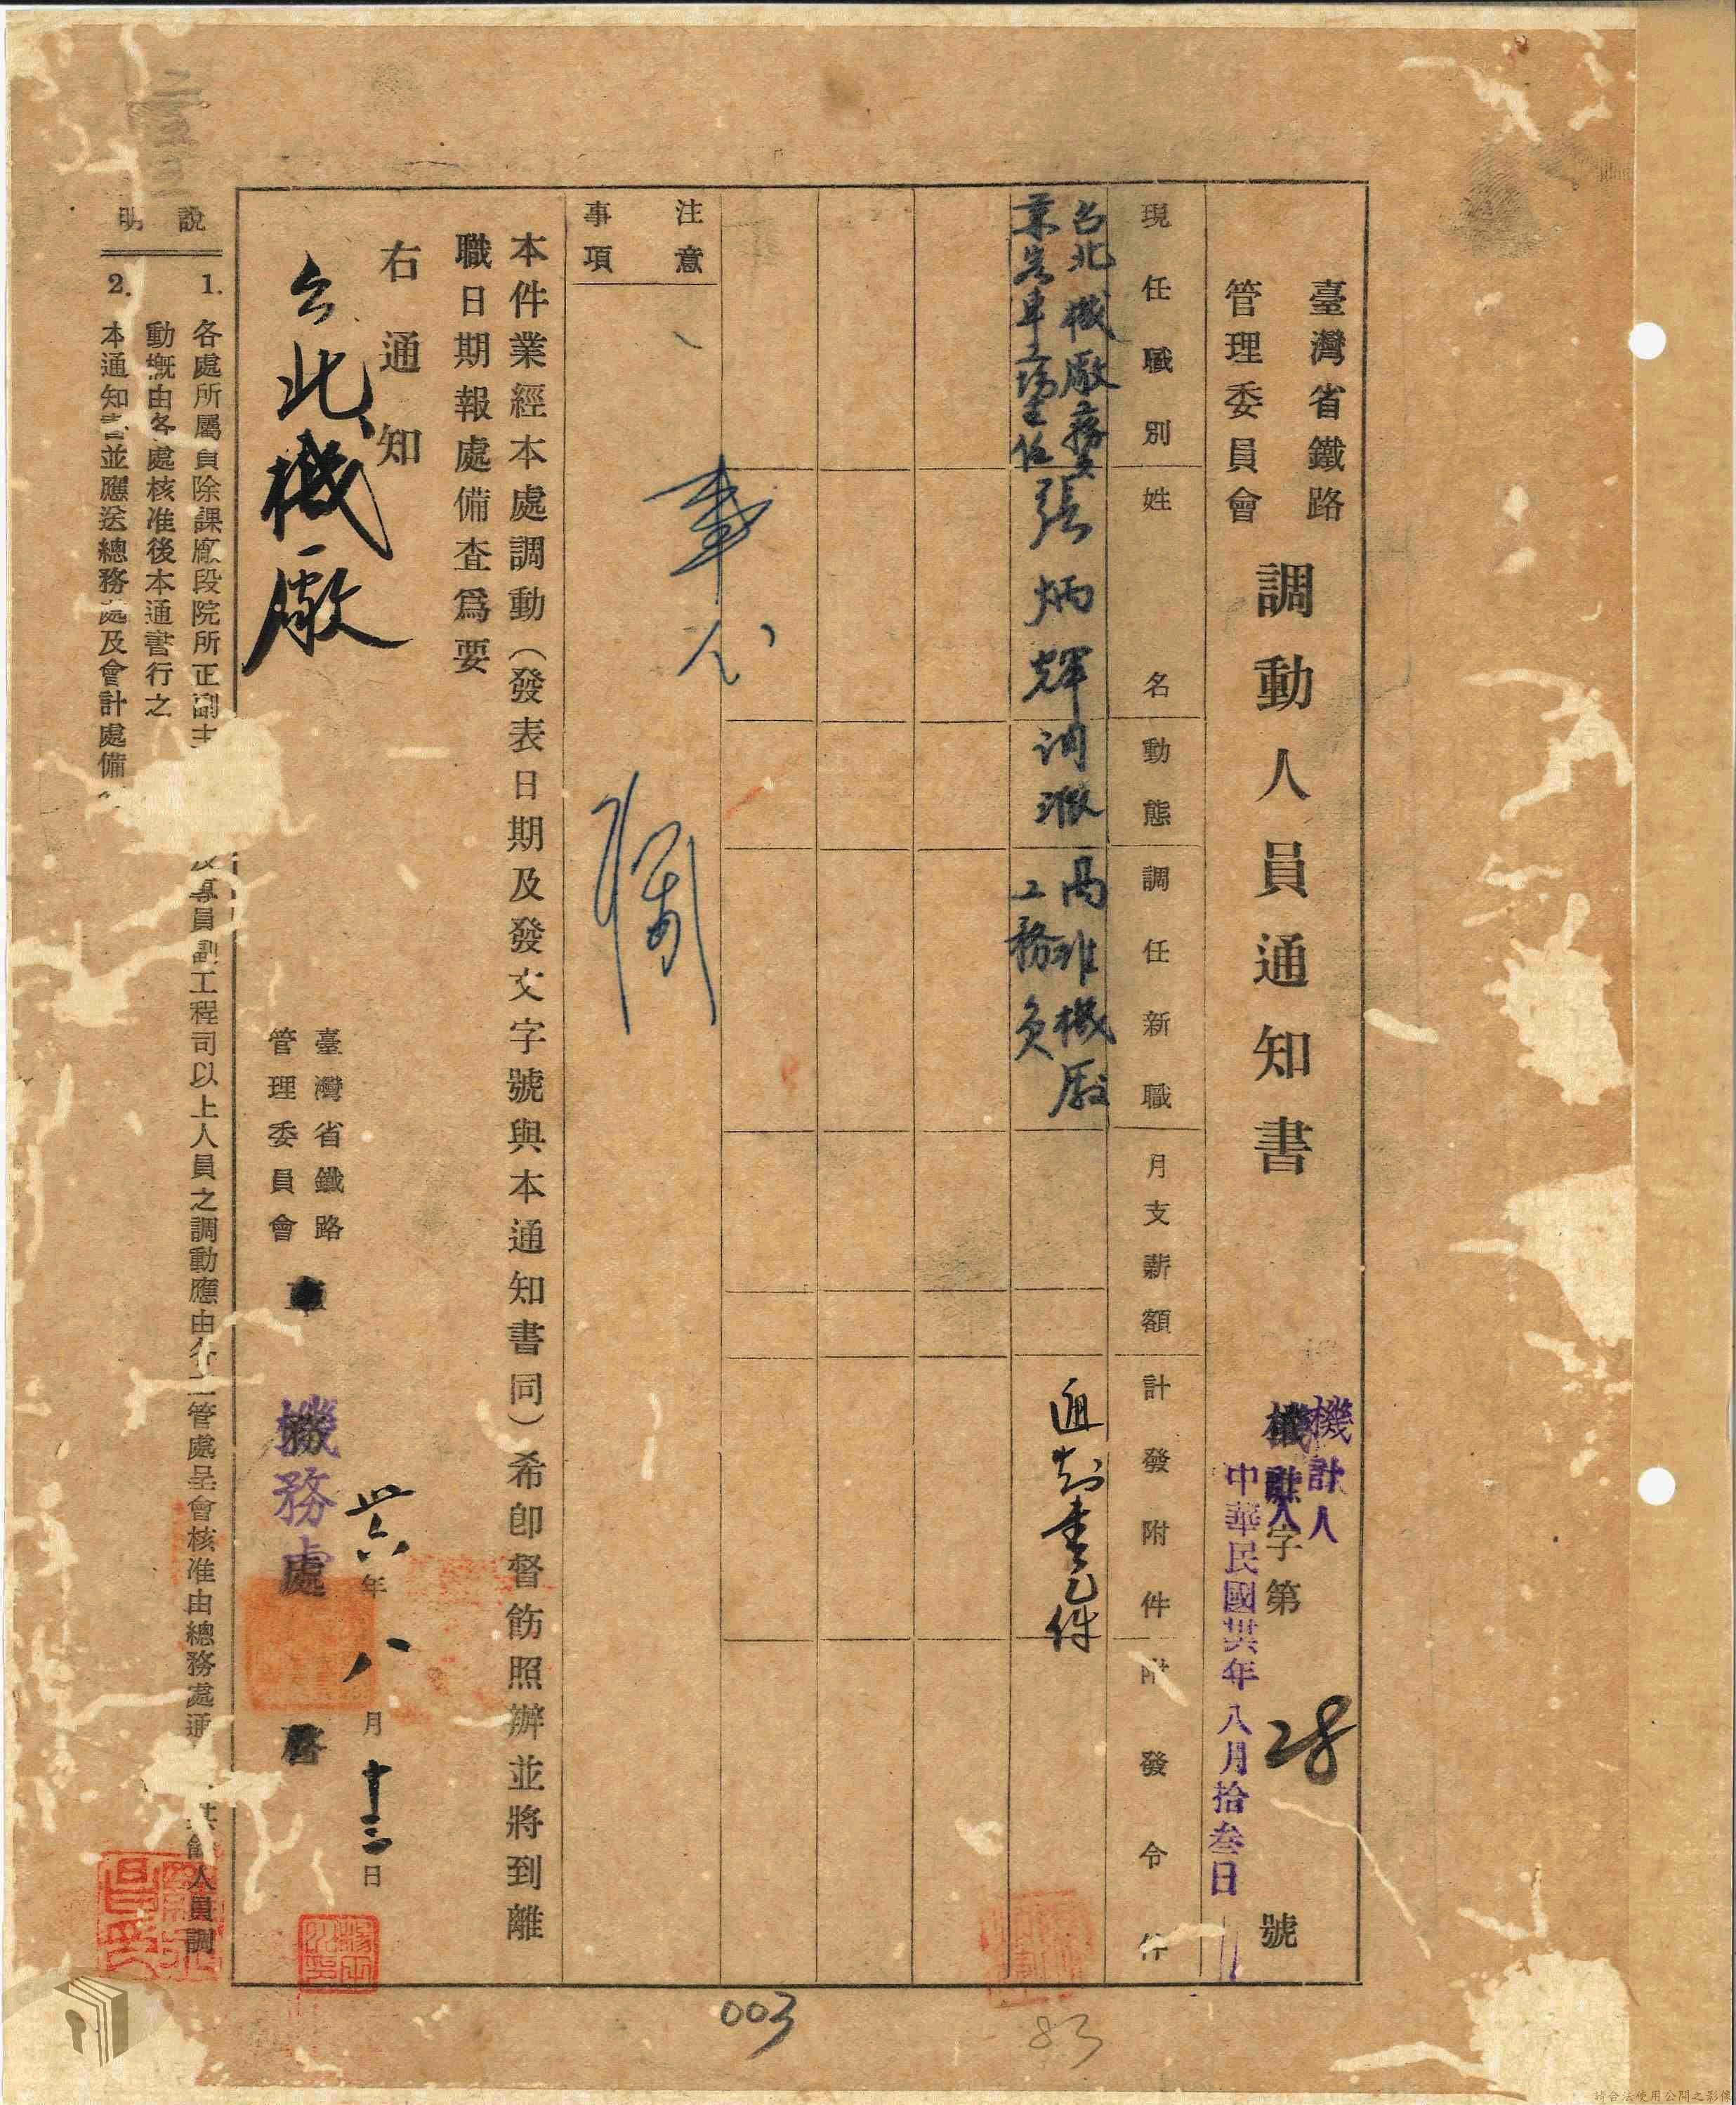 臺灣省鐵路
管理委員會
調動人員通知書
機計人
字第 28 號
中華民國卅六年八月拾叁日
現任職別
姓名
動態
調任新職
月支薪額
計發附件
附發令件
台北機廠務員
兼客車工場主任
張炳輝
調派
高雄機廠
工務員
通知書乙件
注意
事項
本件業經本處調動（發表日期及發文字號與本通知書同）希卽督飭照辦並將到離
職日期報處備查爲要
右通知
台北機廠
臺灣省鐵路
管理委員會
機務處
啓
卅六年八月十三日
說明
1. 各處所屬員除課廠段院所正副主
及專員副工程司以上人員之調動應由
管處呈會核准由總務處通
其餘人員調
動槪由各處核准後本通書行之
2. 本通知書並應送總務處及會計處備
003
83
請合法使用公開之影像